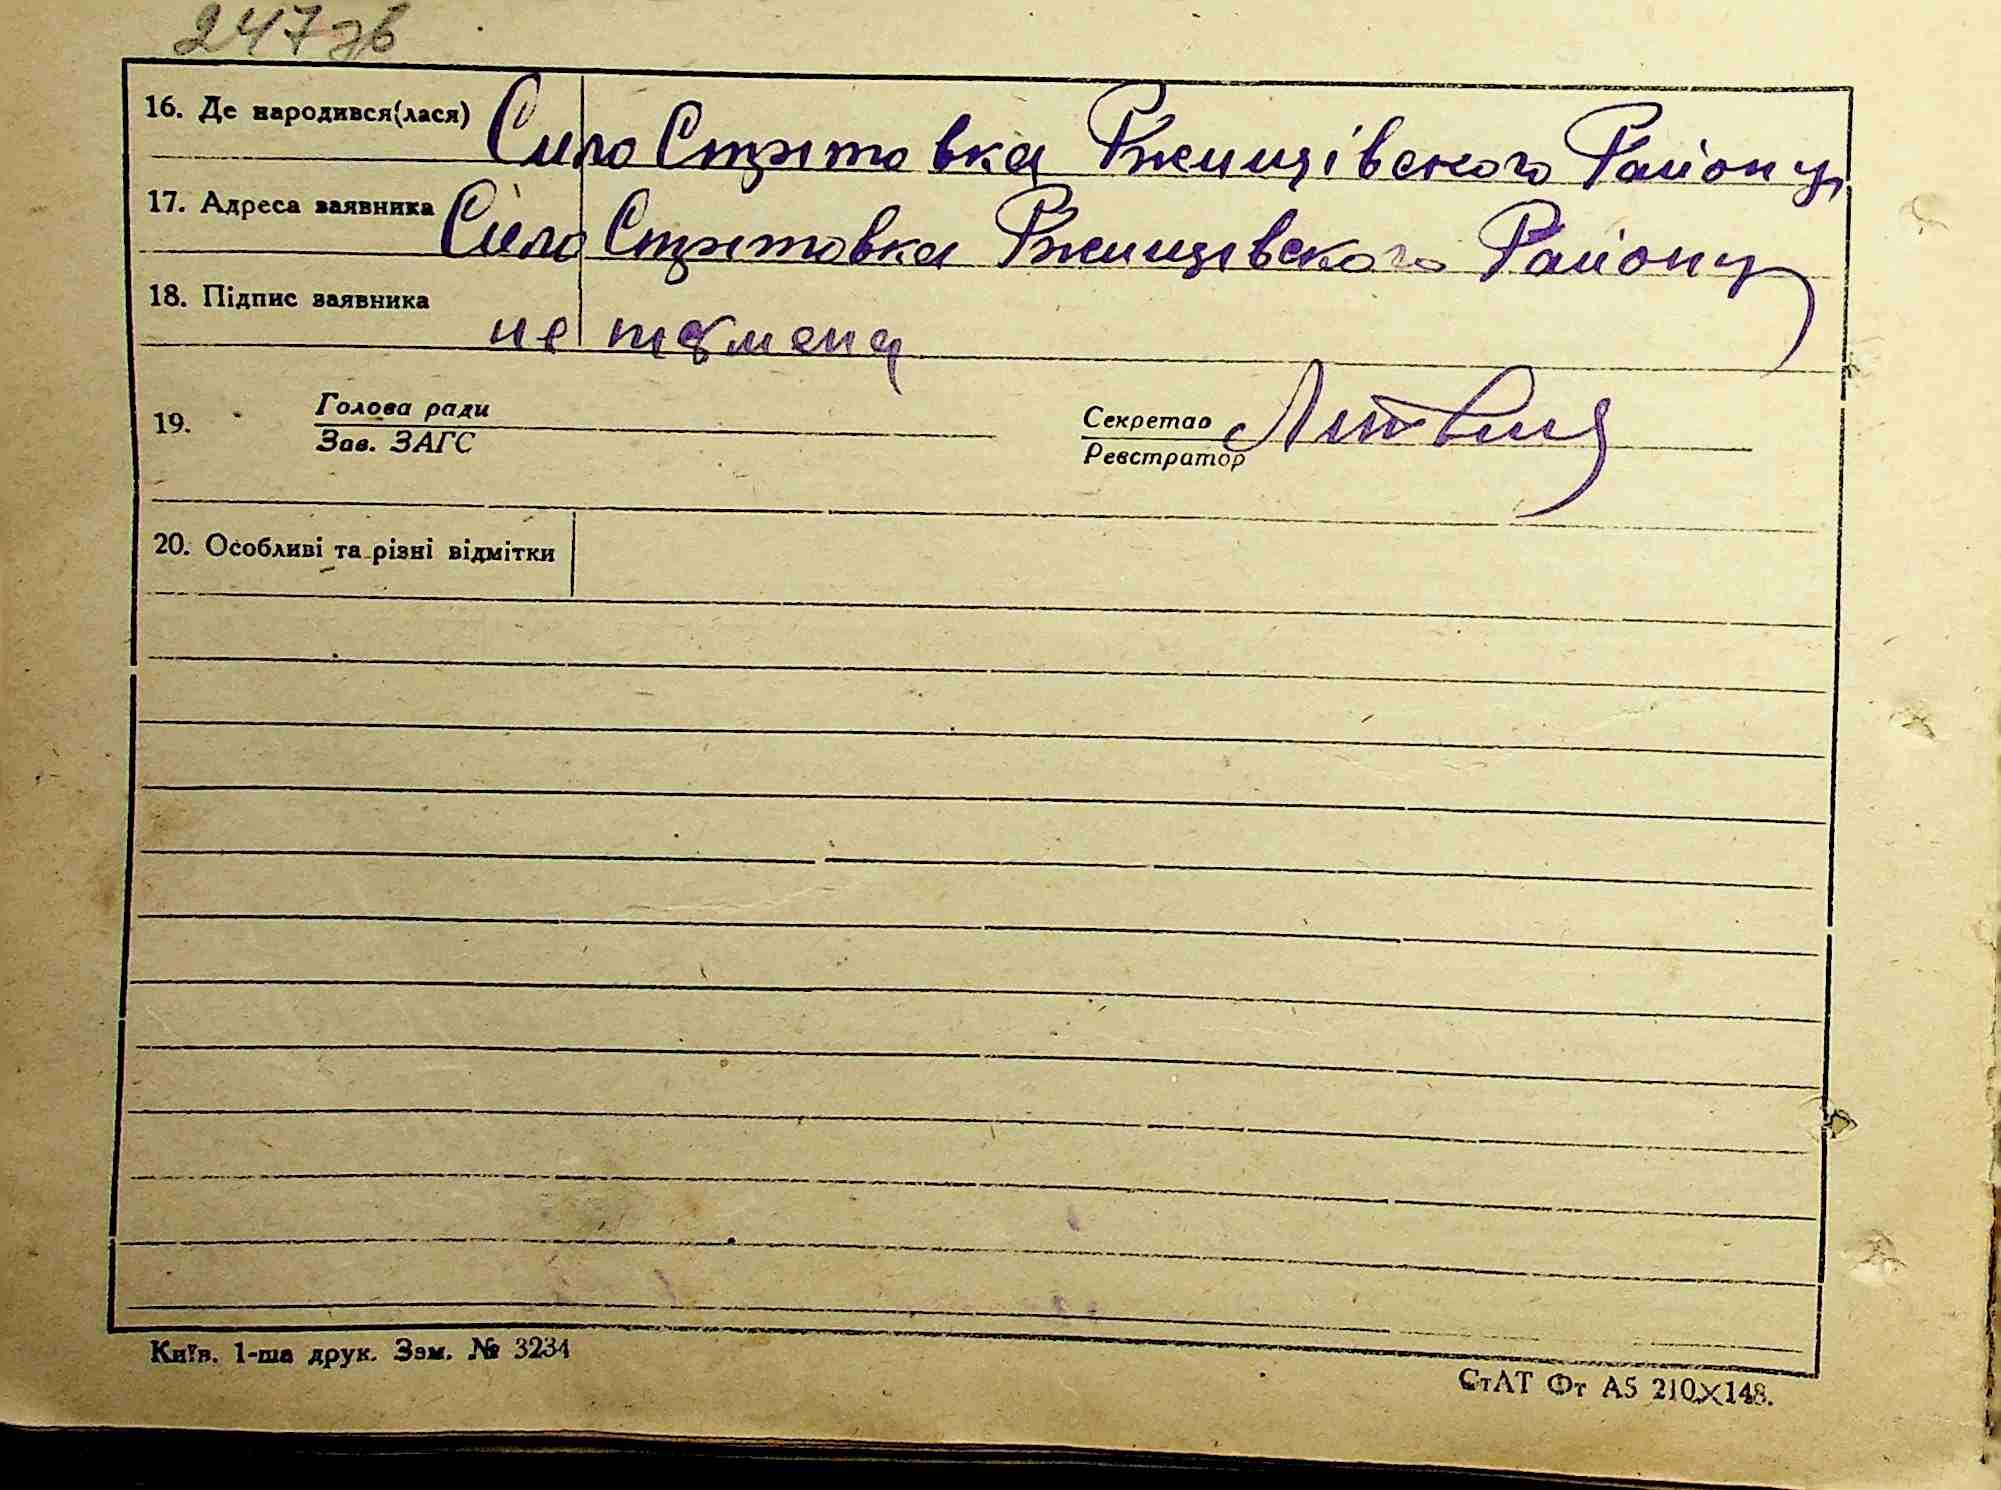 247 зв
16. Де народився(лася) Сило Стритовка Ржищівского Району
17. Адреса заявника Сило Стритовка Ржищевского Району
18. Підпис заявника не
19. Голова ради Секретар Литвин
Зав. ЗАГС Реєстратор
20. Особливі та різні відмітки
Київ. 1-ша друк. Зам. № 3234
СтАТ Фт А5 210×148.